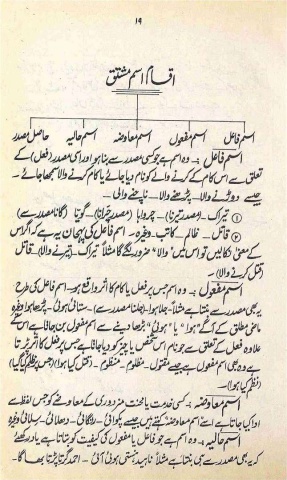 ۱۹
اقسام اسم مشتق
اسم فاعل اسم مفعول اسم معاوضہ اسم حالیہ حاصل مصدر
اسم فاعل :۔ وہ اسم ہے جو کسی مصدر سے بنا ہو اور اسی مصدر (فعل) کے
تعلق سے اس کام کے کرنے والے کو نام دیا جائے یا کام کرنے والا سمجھا جائے۔
جیسے دوڑنے والا۔ پڑھنے والا۔ ناپنے والی۔
① تیراک۔ (مصدر تیرنا)۔ چرواہا (مصدر چرانا) گویّا (گانا مصدر سے)
② قاتل۔ خالد۔ کاتب۔ وغیرہ۔ اسم فاعل کی پہچان یہ ہے کہ اگر اس
کے معنی نکالیں تو اس میں "والا" ضرور لگے گا مثلاً تیراک۔ (تیرنے والا)۔ قاتل۔
(قتل کرنے والا)۔
اسم مفعول :۔ وہ اسم جس پر فعل یا کام کا اثر واقع ہو۔ اسم فاعل کی طرح
یہ بھی مصدر سے بنتا ہے مثلاً۔ جلا ہوا (جلنا مصدر سے)۔ ستائی ہوئی۔ پڑھا ہوا وغیرہ
ماضی مطلق کے آگے "ہوا" یا "ہوئی" بڑھا دینے سے اسم مفعول بن جاتا ہے اس کے
علاوہ فعل کے تعلق سے جو نام اس شخص یا چیز کو دیا جاتا ہے جس پر فعل کا اثر پڑتا
ہے وہ بھی اسم مفعول ہے جیسے مقتول۔ مظلوم۔ منظوم۔ (قتل کیا ہوا) (جس پر ظلم کیا گیا)
(نظم کیا ہوا)۔
اسم معاوضہ :۔ کسی خدمت یا محنت مزدوری کے معاوضے کو جس لفظ سے
ادا کیا جاتا ہے اسے اسم معاوضہ کہتے ہیں جیسے پکوائی۔ رنگائی۔ دھلائی۔ سلائی وغیرہ
اسم حالیہ :۔ وہ اسم ہے جو فاعل یا مفعول کی کیفیت کو بتاتا ہے یاد رکھئے
کہ یہ بھی مصدر سے ہی بنتا ہے مثلاً ناہید ہنستی ہوئی آئی۔ احمد گرتا پڑتا بھاگا۔